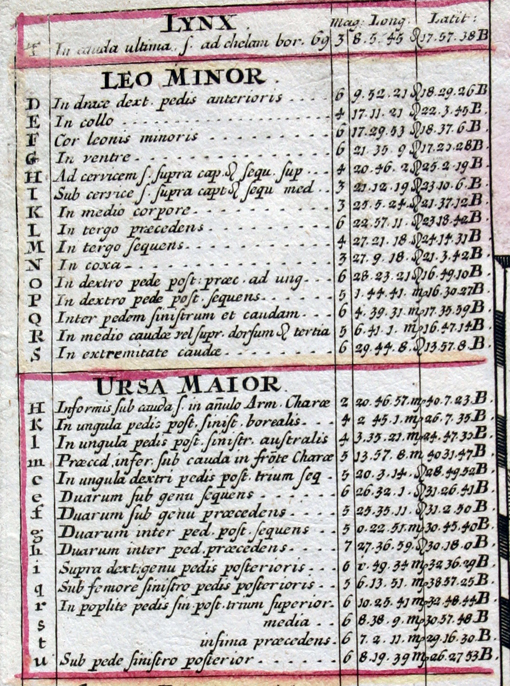 LYNX. Mag: Long: Latit:
T In cauda ultima ſ. ad chelam bor. 69 3 8.5.45 ♌ 17.57.38 B
LEO MINOR.
D In dextro dext. pedis anterioris 6 9.52.21 ♌ 18.29.26 B
E In collo 4 17.11.21 ♌ 22.3.45 B.
F Cor leonis minoris 6 17.29.53 ♌ 18.37.6 B.
G In ventre 6 21.35.9 ♌ 17.21.28 B
H Ad cervicem ſ. ſupra cap. ♌ ſequ. ſup 4 20.46.2 ♌ 25.2.19 B.
I Sub cervice ſ. ſupra capt ♌ ſequ med 3 21.12.19 ♌ 23.10.6 B.
K In medio corpore 3 25.5.24 ♌ 21.37.12 B.
L In tergo præcedens 6 22.57.11 ♌ 23.18.42 B
M In tergo ſequens 4 27.21.18 ♌ 24.14.31 B
N In coxa 3 27.9.18 ♌ 21.3.42 B.
O In dextro pede poſt: præc. ad ung. 6 28.23.21 ♌ 16.49.10 B
P In dextro pede poſt. ſequens 5 1.44.41 ♍ 16.30.27 B
Q Inter pedem ſiniſtrum et caudam. 6 4.39.31 ♍ 17.35.59 B
R In medio caudæ vel ſupr. dorſum ♌ tertia 5 6.41.1 ♍ 16.47.14 B
S In extremitate caudæ 6 29.44.8 ♌ 13.57.8 B.
URSA MAIOR.
H Informis ſub cauda ſ. in añulo Arm. Charæ 2 20.46.57 ♍ 40.7.23 B.
K In ungula pedis poſt. ſiniſt. borealis 4 2.45.1 ♍ 26.7.35 B.
l In ungula pedis poſt. ſiniſtr. australis 4 3.35.21 ♍ 24.47.35 B.
m Præced. infer. ſub cauda in frõte Charæ 5 13.57.8 ♍ 40.31.47 B
c In ungula dextri pedis poſt. trium ſeq. 5 20.3.14 ♌ 28.49.52 B
e Duarum ſub genu ſequens 6 26.32.1 ♌ 31.26.41 B
f Duarum ſub genu præcedens 5 25.35.11 ♌ 31.2.50 B
g Duarum inter ped. poſt. ſequens 5 0.22.51 ♍ 30.45.40 B
h Duarum inter ped. præcedens 7 27.36.59 ♌ 30.18.0 B.
i Supra dext. genu pedis poſterioris 6 v.49.34 ♍ 32.36.29 B
q Sub femore ſiniſtro pedis poſterioris 5 6.13.51 ♍ 38.57.25 B.
r In poplite pedis ſin. poſt. trium ſuperior. 6 10.25.41 ♍ 32.48.44 B
s media 6 8.38.9 ♍ 30.57.48 B
t infima præcedens 6 7.2.11 ♍ 29.16.30 B.
u Sub pede ſiniſtro poſterior 6 8.19.39 ♍ 26.27.53 B.